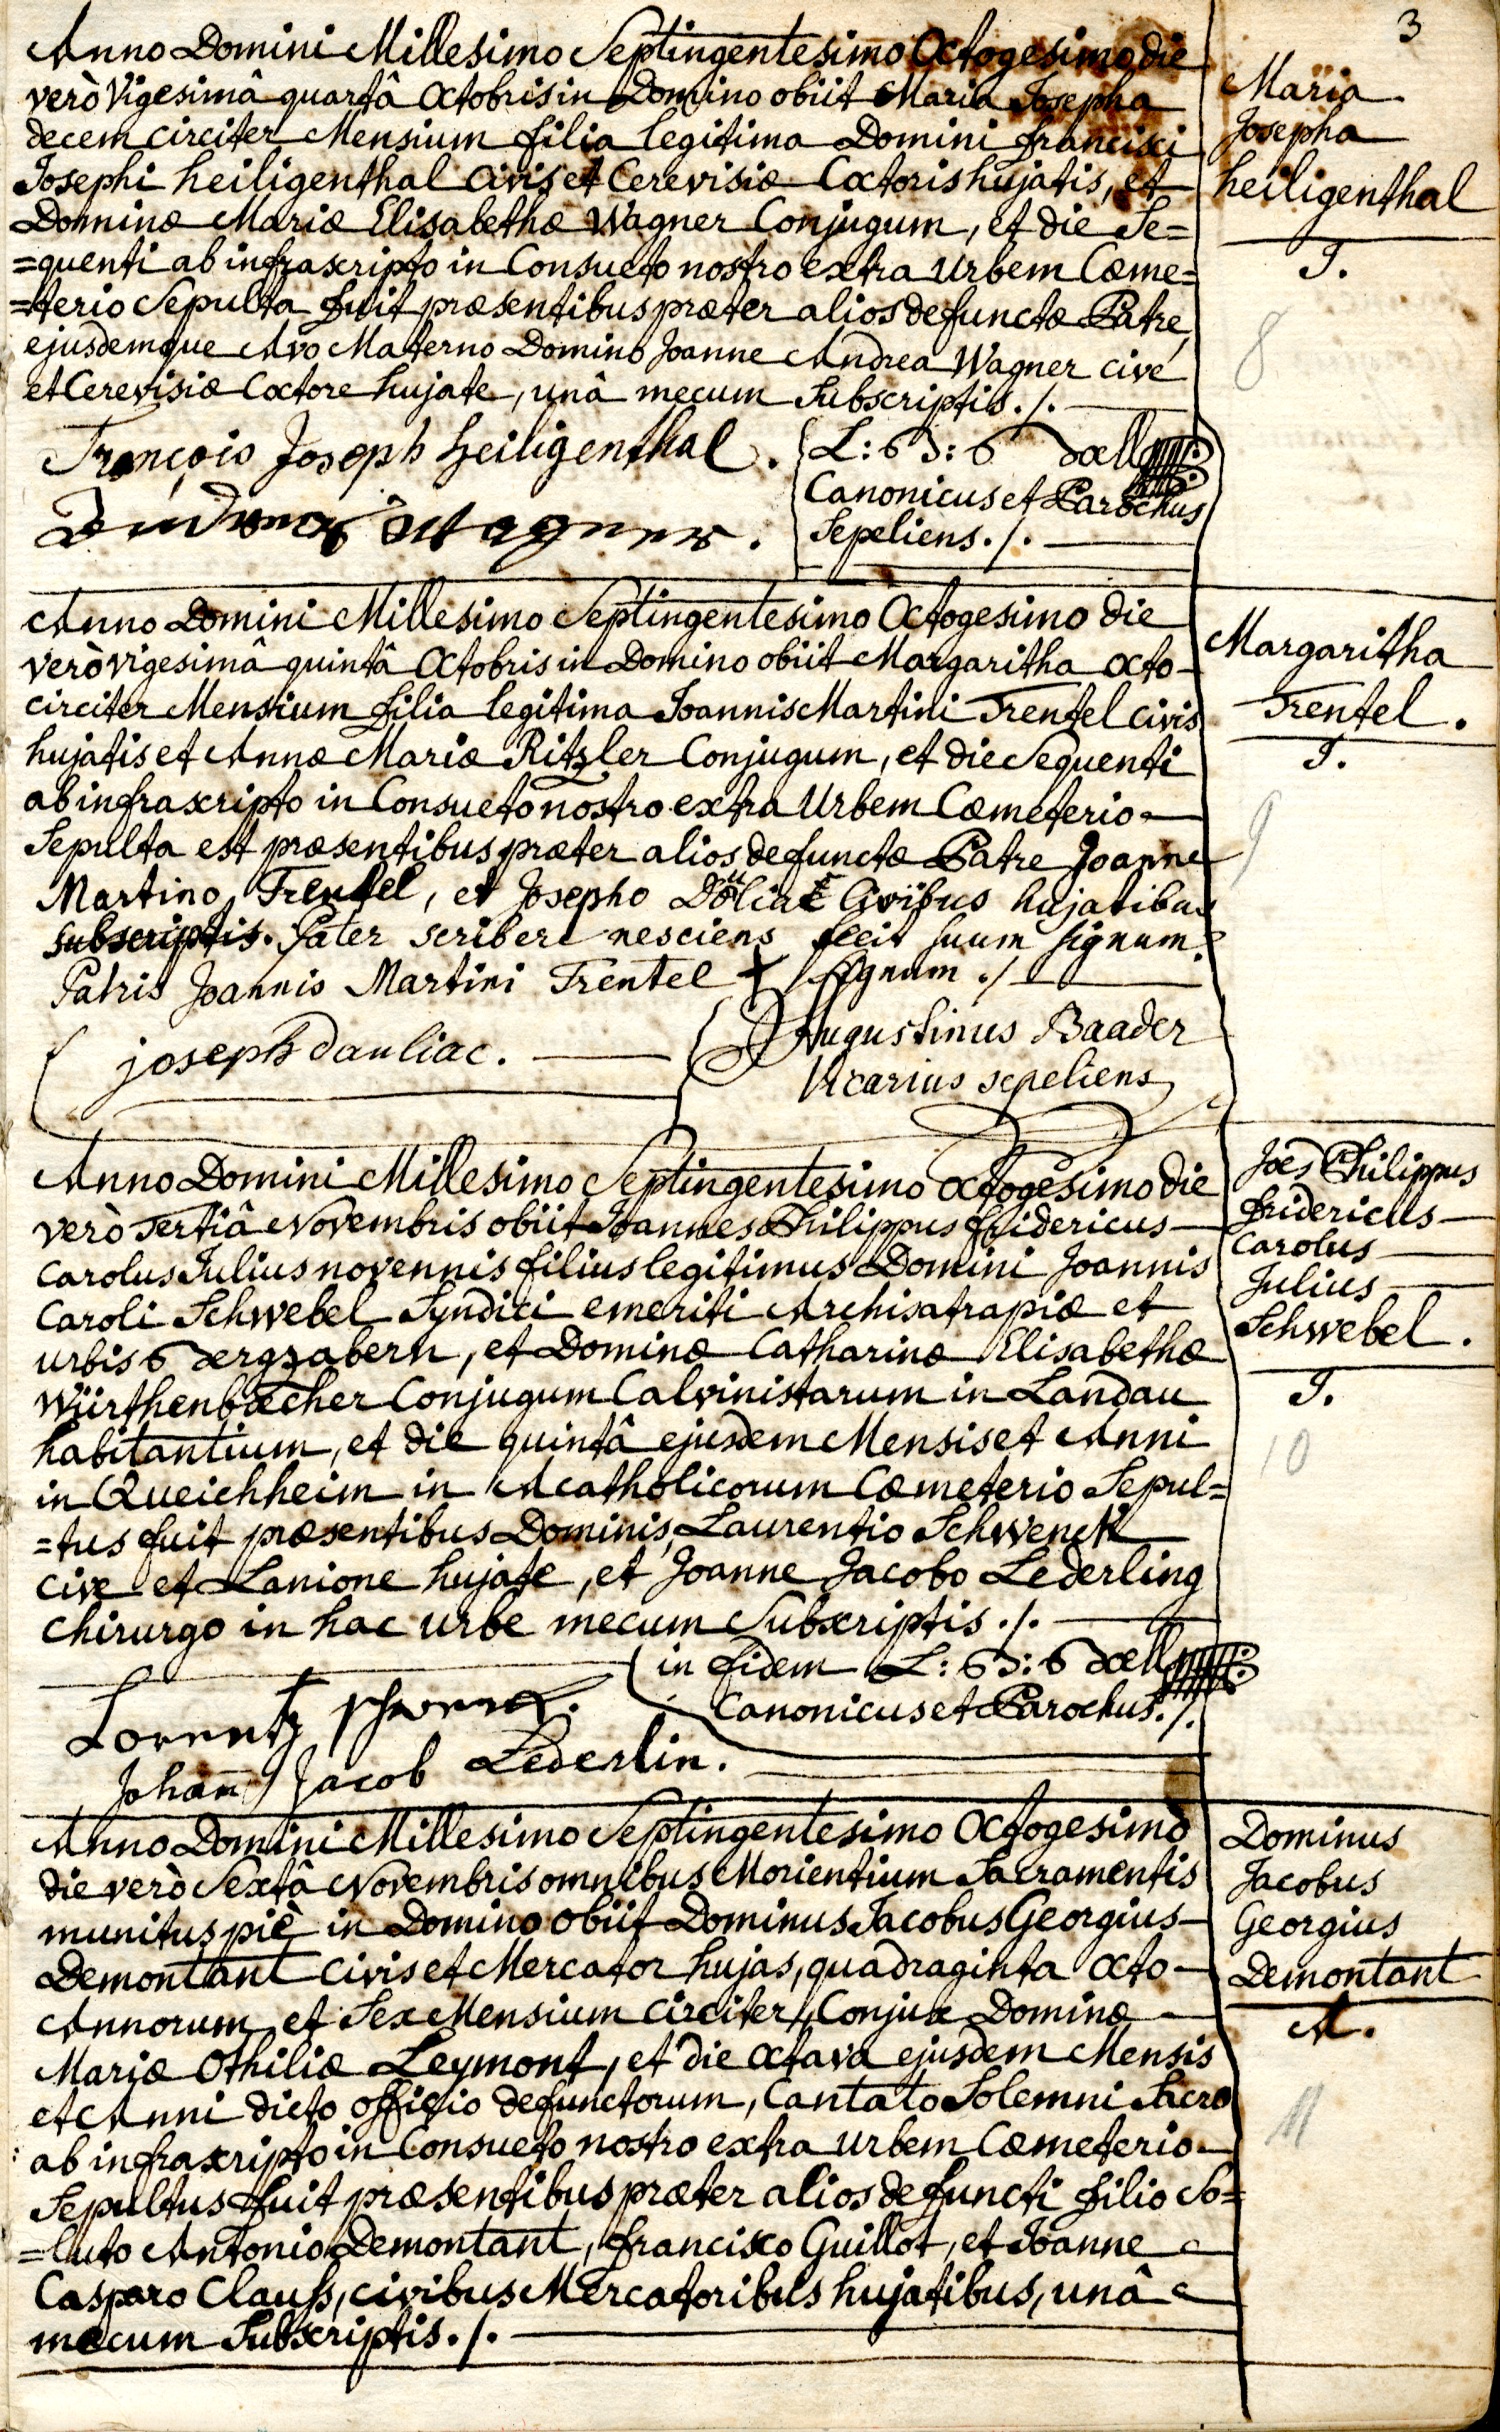 3
Anno Domini Millesimo Septingentesimo Octogesimo die
verò Vigesimâ quartâ Octobris in Domino obiit Maria Josepha
decem circiter Mensium filia legitima Domini francisci
Josephi heiligenthal Civis et Cerevisiæ Coctoris hujatis, et
Dominæ Mariæ Elisabethæ Wagner Conjugum, et die Se=
=quenti ab infrascripto in Consueto nostro extra Urbem Cœme=
=terio Sepulta fuit præsentibus præter alios defunctæ Patre,
ejusdemque Avo Materno Domino Joanne Andrea Wagner cive
et Cerevisiæ Coctore hujate, unâ mecum Subscriptis ./.
Maria
Josepha
heiligenthal
J.
8
François Joseph heiligenthal.
Wagner.
Canonicus et Parochus
Sepeliens ./.
Anno Domini Millesimo Septingentesimo Octogesimo die
verò vigesimâ quintâ Octobris in Domino obiit Margaritha octo
circiter Mensium filia legitima Joannis Martini Trentel civis
hujatis et Annæ Mariæ Ritzler Conjugum, et die Sequenti
ab infrascripto in Consueto nostro extra Urbem Cœmeterio
Sepulta est præsentibus præter alios defunctæ Patre Joanne
Martino Trentel, et Josepho civibus hujatibus
subscriptis. Pater scribere nesciens fecit suum signum.
Patris Joannis Martini Trentel + signum ./
Margaritha
Trentel.
J.
9
joseph dauliac.
Augustinus Baader
Vicarius sepeliens
Anno Domini Millesimo Septingentesimo octogesimo die
verò Tertiâ Novembris obiit Joannes Philippus fridericus
Carolus Julius novennis filius legitimus Domini Joannis
Caroli Schwebel Syndici emeriti Archisatrapiæ et
urbis Bergzabern, et Dominæ Catharinæ Elisabethæ
Würthenbæcher Conjugum Calvinistarum in Landau
habitantium, et die quintâ ejusdem Mensis et Anni
in Queichheim in Acatholicorum Cœmeterio Sepul=
=tus fuit præsentibus Dominis, Laurentio Schwenck
cive et Lanione hujate, et Joanne Jacobo Lederling
Chirurgo in hac Urbe mecum Subscriptis ./.
Joes Philippus
fridericus
Carolus
Julius
Schwebel.
J.
10
in fidem
Canonicus et Parochus ./.
Lorentz Schwenck.
Johann Jacob Lederlin.
Anno Domini Millesimo Septingentesimo Octogesimo
die verò Sextâ Novembris omnibus Morientium Sacramentis
munitus piè in Domino obiit Dominus Jacobus Georgius
Demontant civis et Mercator hujas, quadraginta octo
Annorum et Sex Mensium circiter, Conjux Dominæ
Mariæ Othiliæ Leymont, et die octava ejusdem Mensis
et Anni dicto officio defunctorum, Cantato Solemni Sacro
ab infrascripto in Consueto nostro extra urbem Cœmeterio
Sepultus fuit præsentibus præter alios defuncti filio So=
=luto Antonio Demontant, francisco Guillot, et Joanne
Casparo Clauß, civibus Mercatoribus hujatibus, unâ
mecum Subscriptis ./.
Dominus
Jacobus
Georgius
Demontant
M.
11